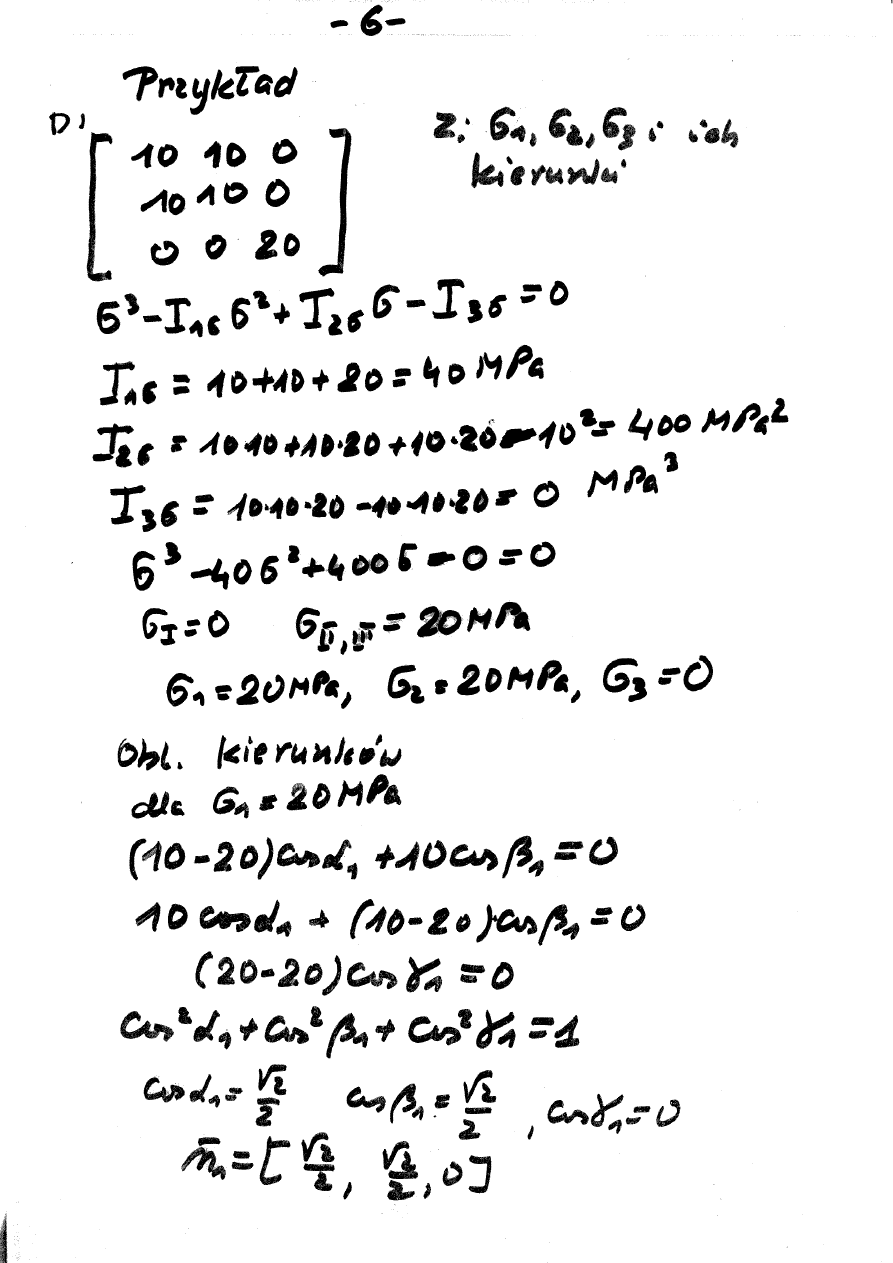 -6-
Przykład
D: Z: σ₁, σ₂, σ₃ i ich
kierunki
[ 10 10 0
10 10 0
0 0 20 ]
σ³-I₁σ σ²+I₂σ σ-I₃σ=0
I₁σ = 10+10+20=40 MPa
I₂σ = 10·10+10·20+10·20-10²=400 MPa²
I₃σ = 10·10·20-10·10·20=0 MPa³
σ³-40σ²+400σ-0=0
σ_I=0 σ_II,III=20MPa
σ₁=20MPa, σ₂=20MPa, σ₃=0
Obl. kierunków
dla σ₁=20MPa
(10-20)cosα₁+10cosβ₁=0
10cosα₁+(10-20)·cosβ₁=0
(20-20)cosγ₁=0
cos²α₁+cos²β₁+cos²γ₁=1
cosα₁=√2/2 cosβ₁=√2/2, cosγ₁=0
n̄₁=[√2/2, √2/2, 0]